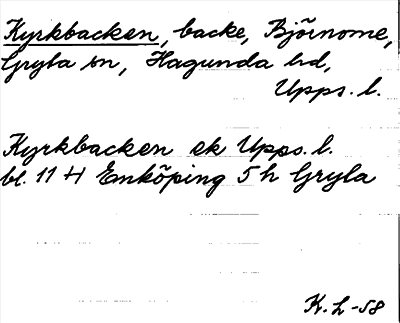 Kyrkbacken, backe, Björnome,
Gryta sn, Hagunda hd,
Upps. l.
Kyrkbacken ek Upps. l.
bl. 11 H Enköping 5 h Gryta
K. L -58